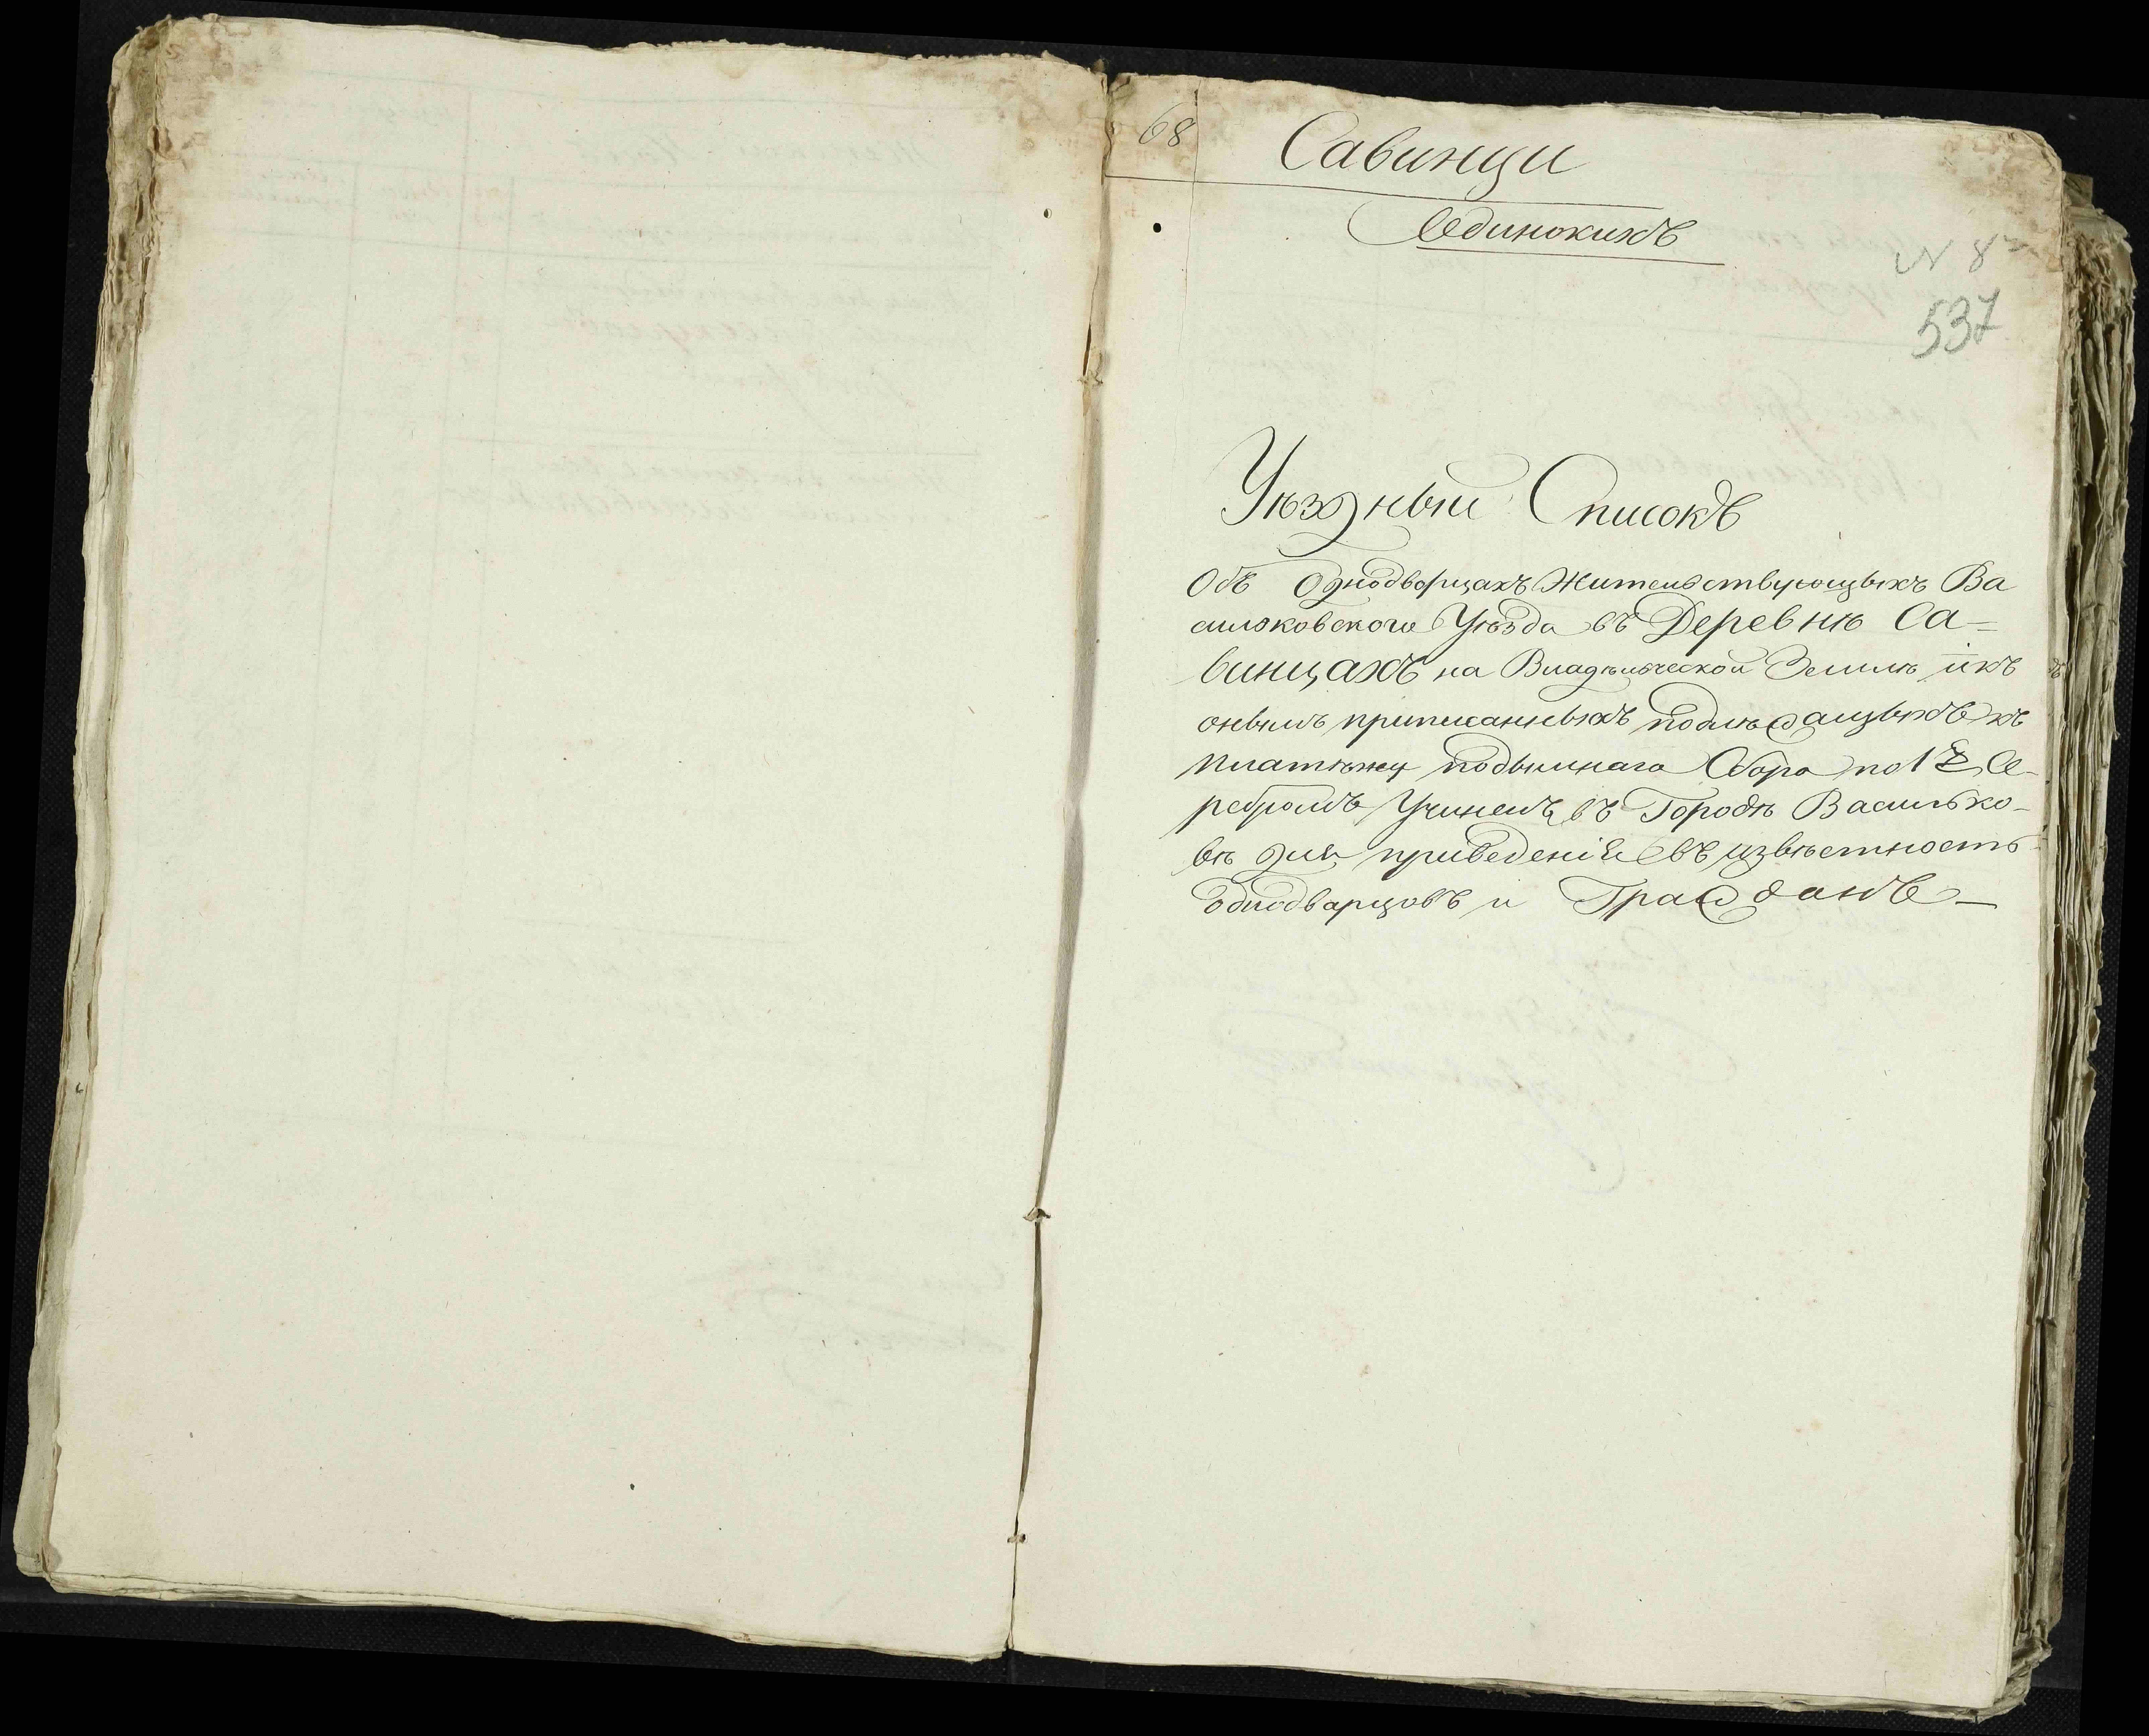 68
Савинци
Единокихъ
N 8
537
Уѣздный Списокъ
Объ Однодворцахъ Жительствующыхъ Ва
сильковского Уѣзда въ Деревнѣ Са=
винцахъ на Владѣльческой Землѣ и къ
онымъ приписанныхъ подлѣжащыхъ къ
платѣжу подымнаго Сбора по 1 Се-
ребромъ Учиненъ въ Городѣ Василько-
вѣ для приведенія въ извѣстность
однодварцовъ и Граждань-